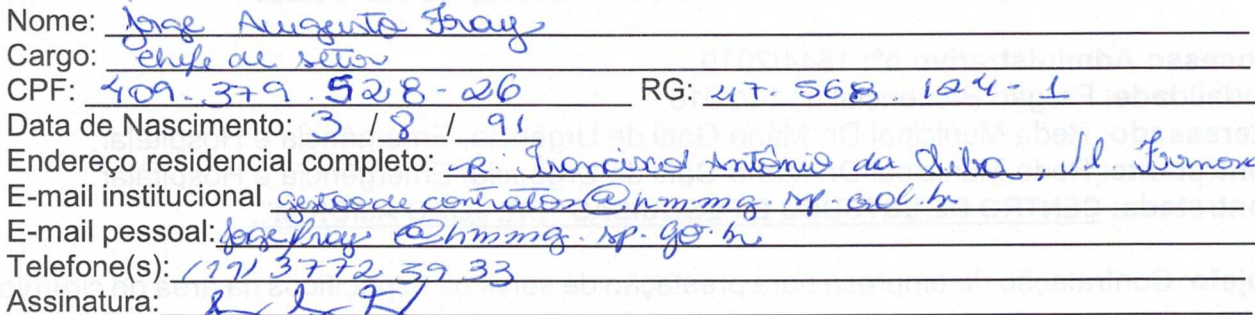 Nome: Jorge Augusto Fray
Cargo: chefe de setor
CPF: 409.379.528-26 RG: 47.568.124-1
Data de Nascimento: 3 / 8 / 91
Endereço residencial completo: R. Francisco Antônio da Silva, Vl Formosa
E-mail institucional gestao de contratos@hmmg.sp.gov.br
E-mail pessoal: jorgefray@hmmg.sp.gov.br
Telefone(s): (19) 3772 5933
Assinatura: